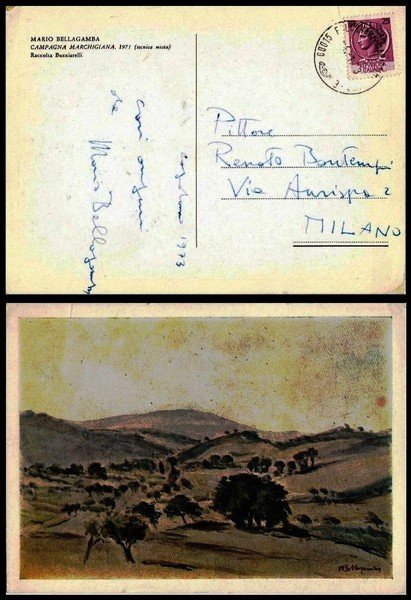 MARIO BELLAGAMBA
CAMPAGNA MARCHIGIANA, 1971 (tecnica mista)
Raccolta Bucciarelli
60015
1973
cari auguri
da
Mario Bellagamba
Pittore
Renato Bontempi
Via Aurispa 2
MILANO